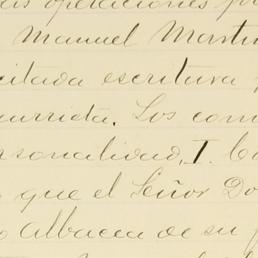 las operaciones
Manuel Martin
citada escritura
currieta. Los com
ersonalidad, I.
que el Señor Do
Albacea de su